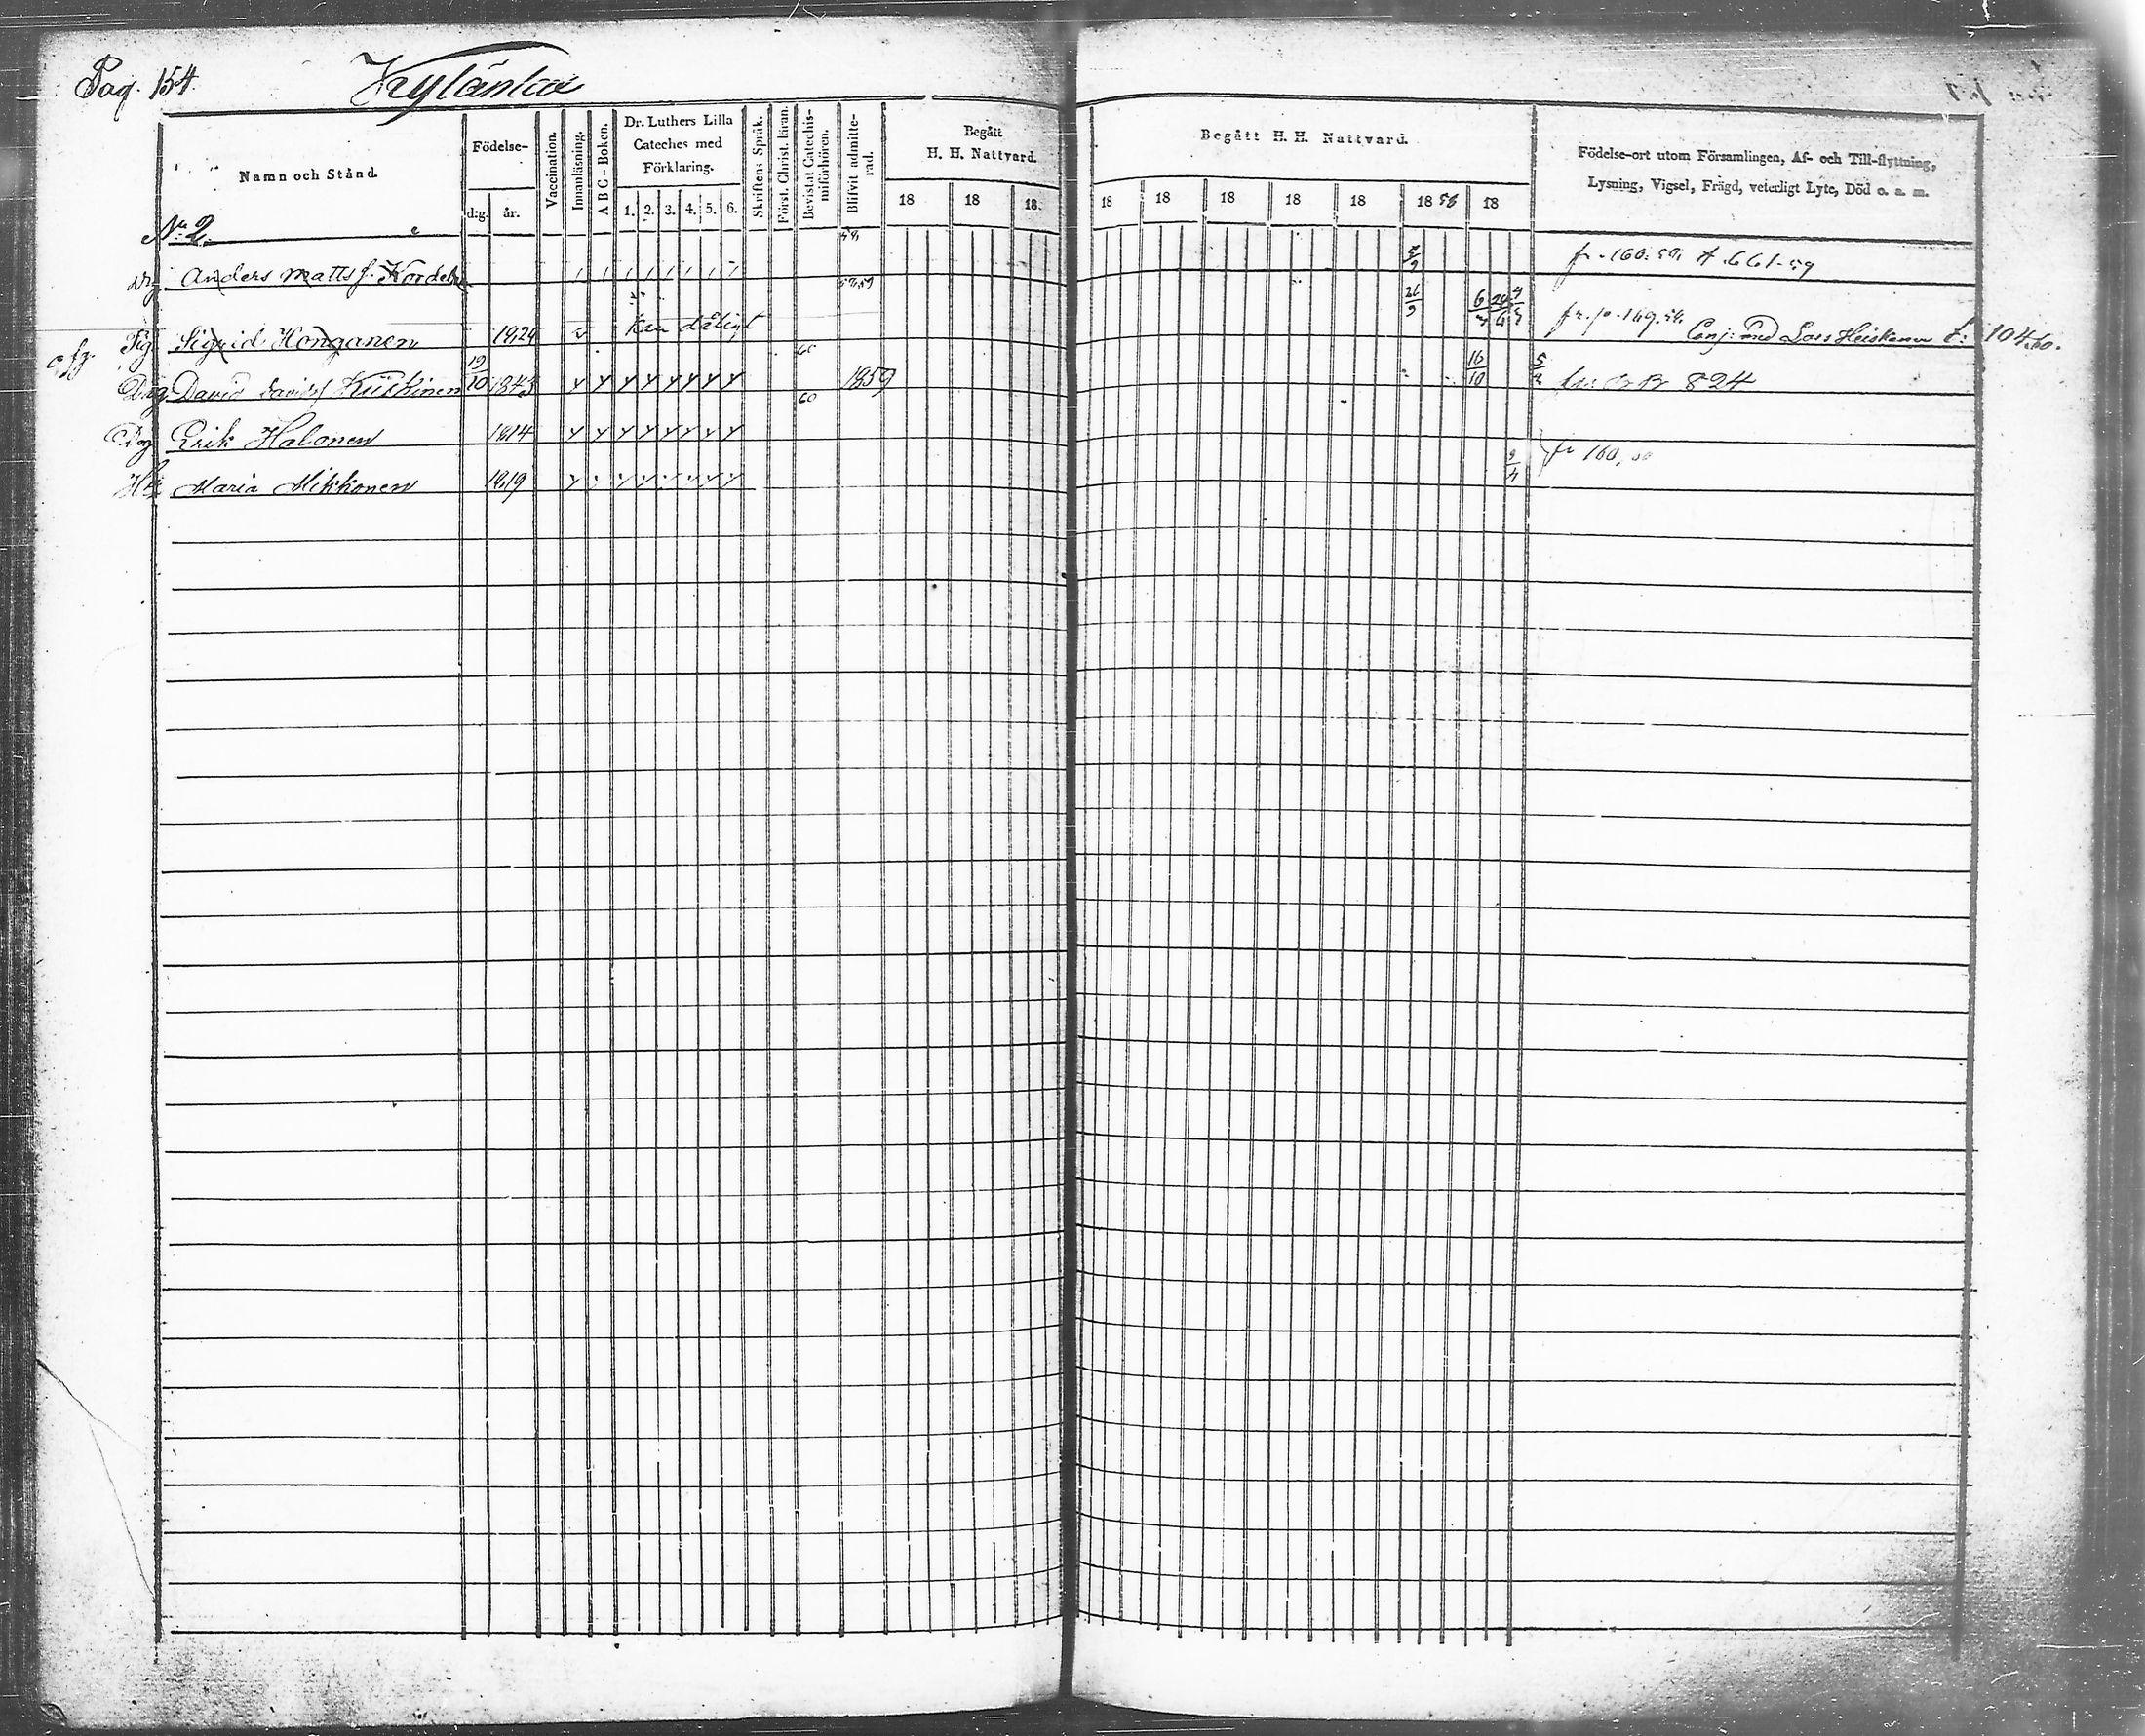 Pag. 154.
Kylänlax
Namn och Stånd.
Födelse-
d:g.
år.
Vaccination.
Innanläsning.
A B C - Boken.
Dr. Luthers Lilla
Cateches med
Förklaring.
1. 2. 3. 4. 5. 6.
Skriftens Språk.
Först. Christ. läran.
Bevistat Catechis-
miförhören.
Blifvit admitte-
rad.
Begått
H. H. Nattvard.
18 18 18.
Begått H. H. Nattvard.
18 18 18 18 18 18 56 18
Födelse-ort utom Församlingen, Af- och Till-flyttning,
Lysning, Vigsel, Frägd, veterligt Lyte, Död o. a. m.
No 2.
Anders Matts f.
fr. 160. 661-59
Pig Sigrid Honganen 1824 kan dåligt 26/9
fr. p. 149.
Conj: med Lars Heiskanen t: 104.60.
Dng David Davidsf Kiiskinen 19/10 1843 60 1859 16/10
824
Dng Erik Halonen 1814 60
fr 160,
Hu Maria Mikkonen 1819